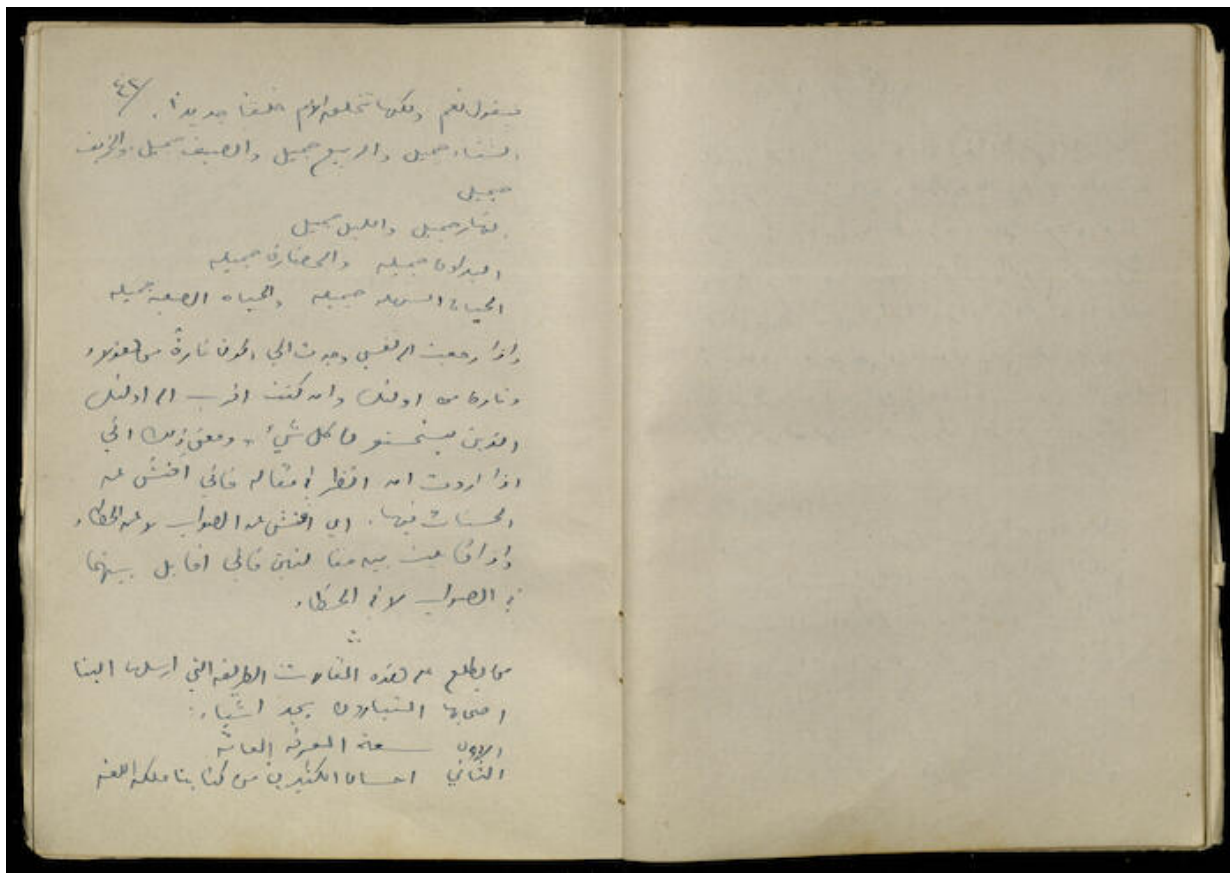 ٤٢/
فيقول نعم ولكنها تخلق الأم خلقا جديدا.
الشتاء جميل والربيع جميل والصيف جميل والخريف
جميل
النهار جميل والليل جميل
البداوة جميله والحضارة جميله
الحياة السهله جميله والحياه الصعبه جميله
واذا رجعت الى نفسي وجدت اني اكون تارةً من هؤلاء
وتارة من اولئك وان كنت اقرب الى اولئك
الذين يستحسنون كل شيء، ومعنى ذلك اني
اذا اردت ان انظر في مقاله فاني افتش عن
الحسنات فيها. اي افتش عن الصواب لا عن الخطاء
واذا قابلت بين مقالتين فاني اقابل بينهما
في الصواب لا في الخطاء.
من يطلع على هذه المقالات الطريفه التي ارسلها الينا
اصحابها المتبارون يجد اشياء:
الاول سعة المعرفه العامّه
الثاني احسان الكثيرين من كتابنا ملكه اللغه